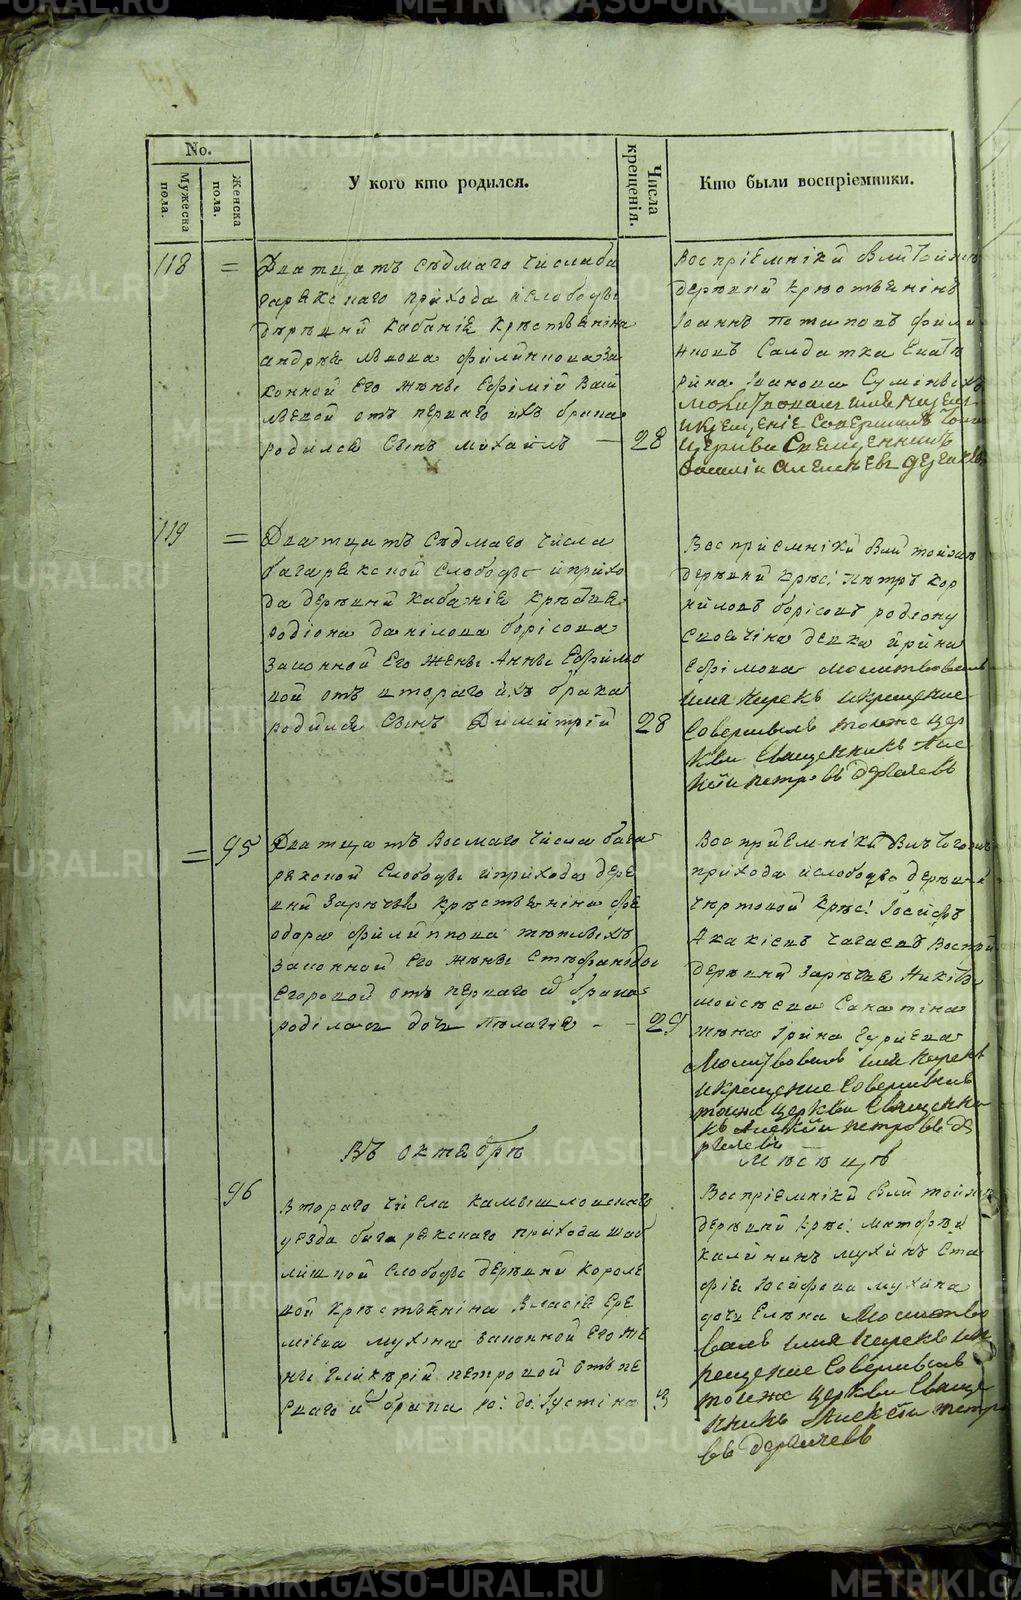 No.
Мужеска пола.
Женска пола.
У кого кто родился.
Числа крещенія.
Кто были воспріемники.
118 =
Дватцать сѣдмаго числа ба
гарякскаго прихода ислободы
дѣрѣвни кабаніе крѣстьянина
андрѣя лвова филипповаза
конной Его жѣнѣ Ефімій Васи
льѣвой отъ перваго ихъ брака
родился сынъ михайлъ — 28
Воспріемніки были тойже
дерѣвни крѣстьянинъ
Іоаннъ потаповъ фили
повъ Салдатка Екате
рина Іванова
молитвовалъ имя нарекъ
икрещеніе Совершилъ тоя
церкви Священникъ
119 =
Дватцать сѣдмаго числа
багарякской слободы иприхо
да дерѣвни кабаніе крѣстья
родіона данилова борісова
законной Его женѣ Аннѣ Ефимо
вой отъ втораго ихъ брака
родился сынъ Димитрій 28
Воспріемніки были тойже
дерѣвни крѣс: пѣтръ кор
ниловъ борісовъ родіону
дѣвка ирина
Ефімова молитвовалъ
имя нарекъ икрещение
Совершилъ тоиже цер
кви Священникъ Але
ксіи петровъ дерѣгаевъ
= 95
Дватцать восмаго числа бага
рякской слободы иприхода дерѣ
вни Зарѣчье крѣстьянина фе
одора филиппова
законной Его жѣнѣ Стефаніде
Егоровой отъ перваго ихъ брака
роділась дочь пѣлагія - - 29
Воспріемніки былѣ
прихода ислободы дерѣвни
чертовой крѣс: Іосифъ
Акакіевъ
дерѣвни Зарѣчье никіты
мойсѣева
жѣна Іріна Гуріева
Молитвовалъ имя нарекъ
икрещение Совершилъ
тоиже церкви Священни
къ Алексіи петровъ де
Въ октябрѣ Мѣсяцѣ
96
Втораго числа камышловскаго
уѣзда багарякскаго прихода шаб
лишной слободы дерѣвни короле
вой крѣстьяніна Власія Ере
міева мухіна законной Его же
нѣ гликѣрій петровой отъ пе
рваго и брака ро: до: Іустіна 3
Воспріемніки были тойже
дерѣвни крѣс: матфѣй
калининъ мухінъ Ста
фіе Іосифова мухіна
дочь Елѣна Молитво
валъ имя нарекъ ик
рещение Совершилъ
тоиже церкви Свяще
нникъ Алексіи петро
въ дерѣгаевъ
METRIKI.GASO-URAL.RU